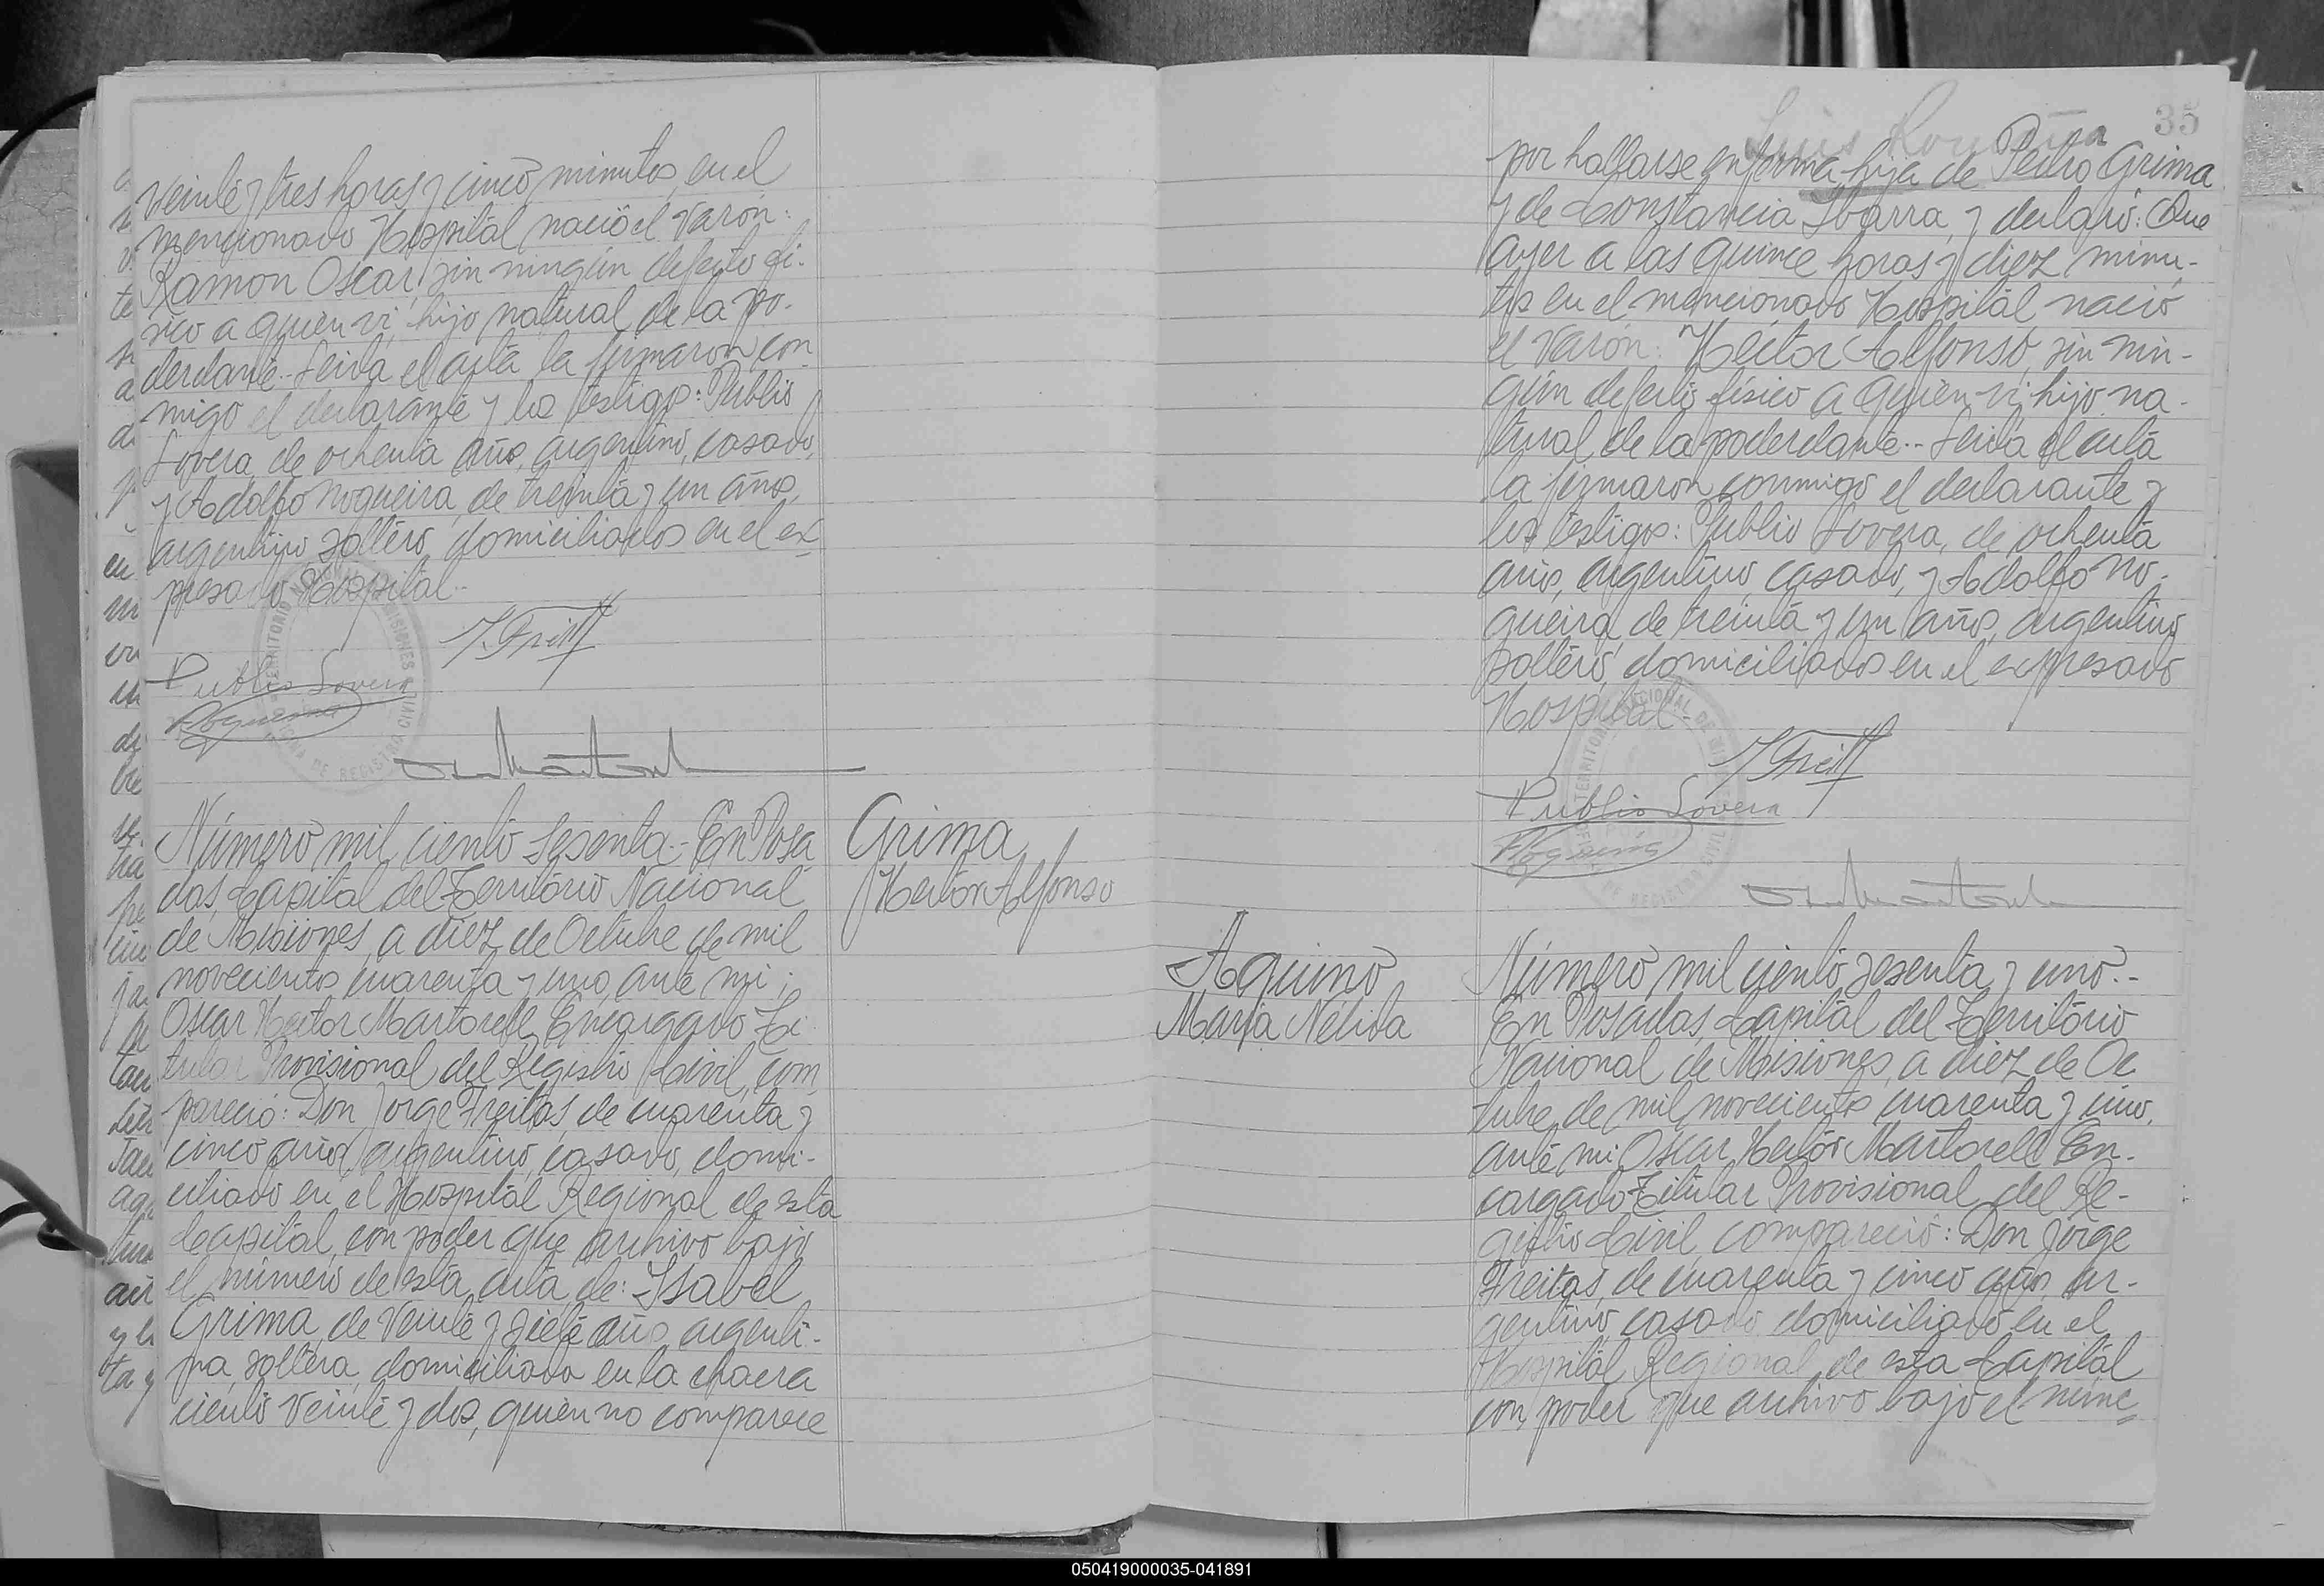 veinte y tres horas y cinco minutos, en el
mencionado Hospital nació el varón:
Ramon Oscar, sin ningún defecto fí-
sico a quien vi, hijo natural de la po-
derdante.- Leida el acta la firmaron con
migo el declarante y los testigos: Publio
Lovera, de ochenta años, argentino, casado,
y Adolfo Nogueira, de treinta y un años,
argentino, soltero, domiciliados en el ex-
presado Hospital.-
Publio Lovera
Número mil ciento sesenta.- En Posa
das, Capital del Territorio Nacional
de Misiones, a diez de Octubre de mil
novecientos cuarenta y uno, ante mi;
Oscar Hector Martorell, Encargado Ti
tular Provisional del Registro Civil, com
pareció: Don Jorge Freitas, de cuarenta y
cinco años, argentino, casado, domi-
ciliado en el Hospital Regional de esta
Capital, con poder que archivo bajo
el número de esta acta, de: Isabel
Grima, de veinte y siete años, argenti-
na, soltera, domiciliada en la chacra
ciento veinte y dos, quien no comparece
Grima
Hector Alfonso
35
por hallarse enferma, hija de Pedro Grima
y de Constancia Ibarra, y declaró: Que
ayer a las quince horas y diez minu-
tos en el mencionado Hospital nació
el varón: Hector Alfonso, sin nin-
gún defecto físico a quien vi, hijo na-
tural de la poderdante.- Leida el acta
la firmaron conmigo el declarante y
los testigos: Publio Lovera, de ochenta
años, argentino, casado, y Adolfo No-
gueira, de treinta y un años, argentino
soltero, domiciliados en el expresado
Hospital.-
Publio Lovera
Aquino
Maria Nélida
Número mil ciento sesenta y uno.-
En Posadas, Capital del Territorio
Nacional de Misiones, a diez de Oc
tubre de mil novecientos cuarenta y uno,
ante mi Oscar Hector Martorell En-
cargado Titular Provisional del Re-
gistro Civil, compareció: Don Jorge
Freitas, de cuarenta y cinco años, ar-
gentino, casado, domiciliado en el
Hospital Regional de esta Capital
con poder que archivo bajo el núme-
050419000035-041891